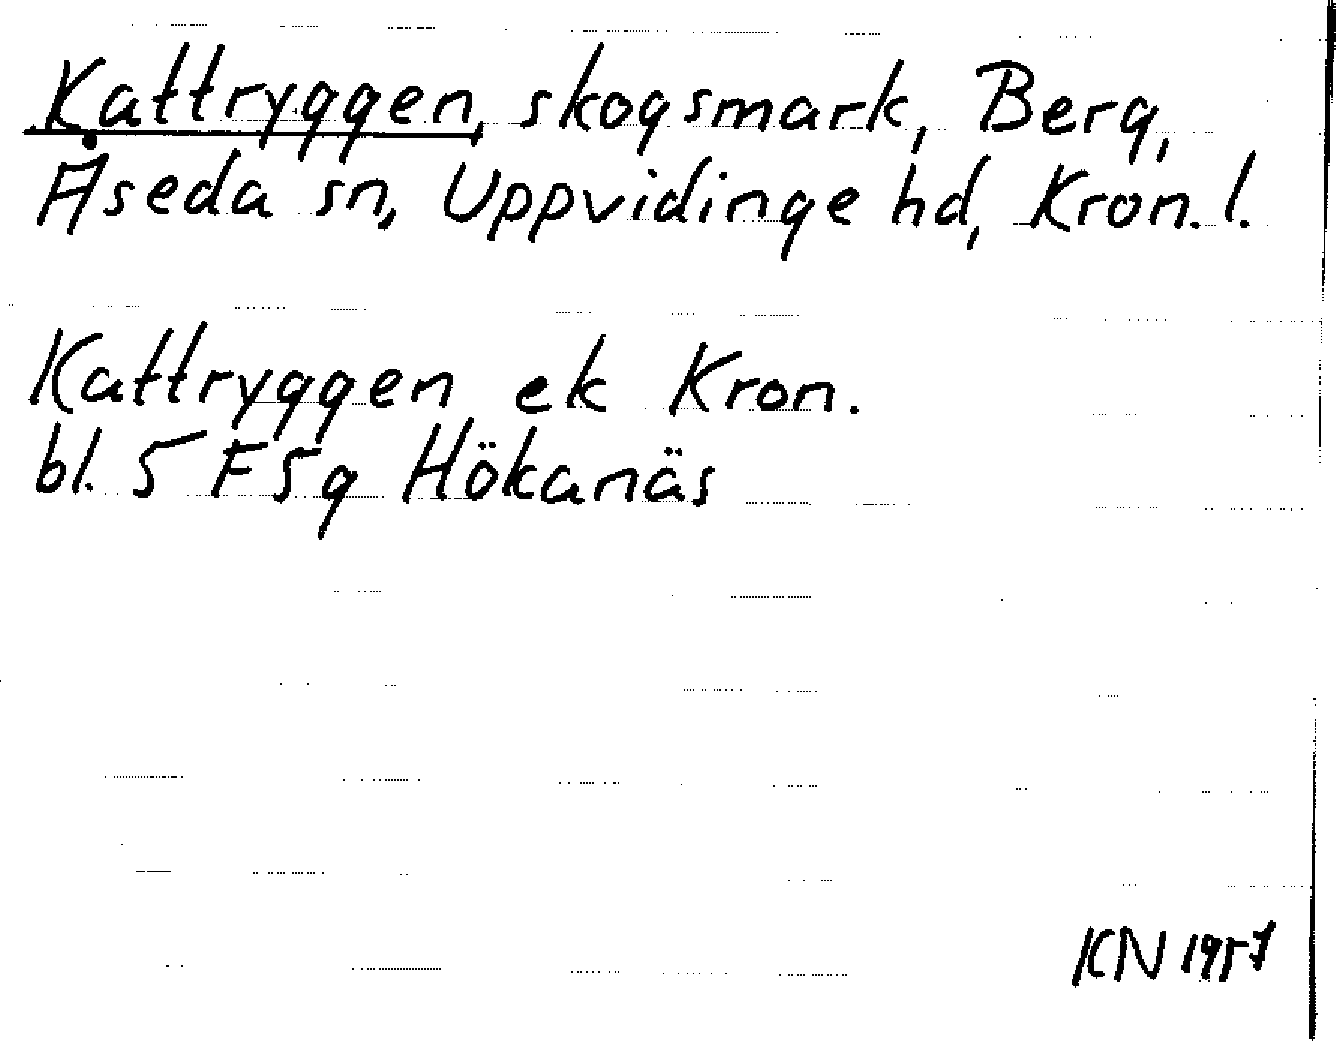 Kattryggen, skogsmark, Berg,
Åseda sn, Uppvidinge hd, Kron. l.
Kattryggen ek Kron.
bl. 5 F5g Hökanäs
KN 1957